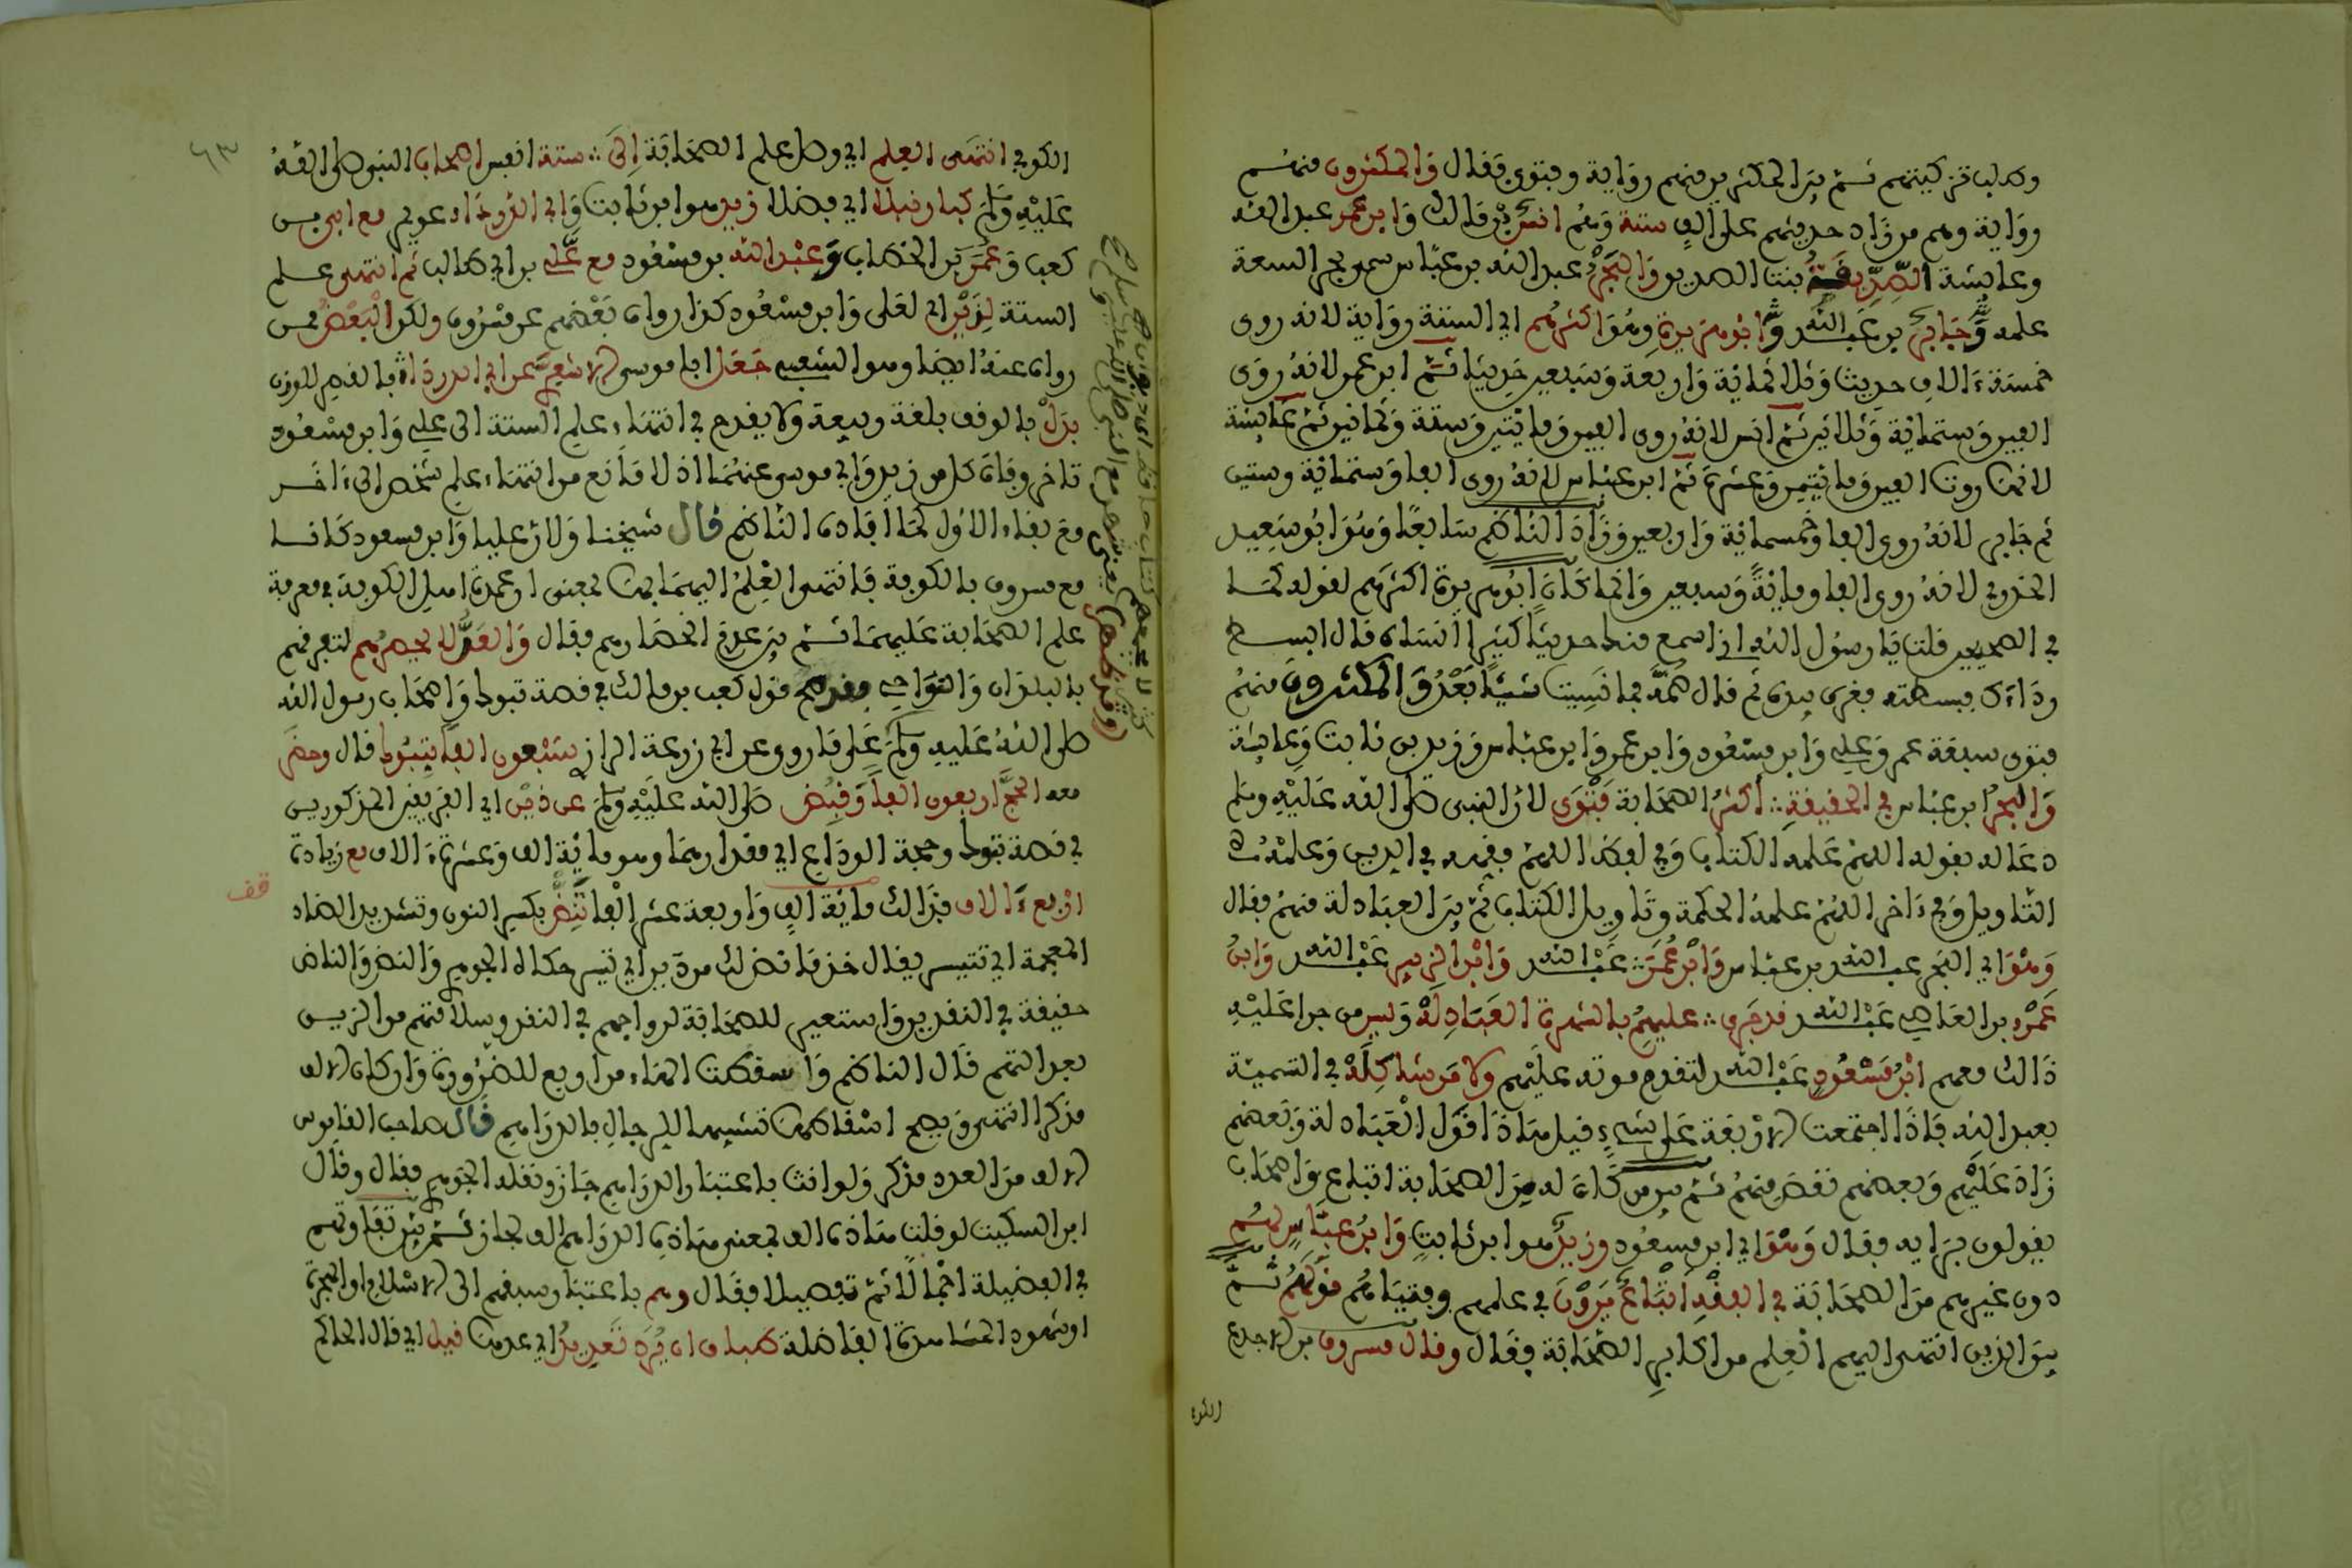 وطلب تزكيتهم ثم بين المكثرين منهم رواية وفتوى فقال والمكثرون منهم
رواية وهم من زاد حديثهم على الف ستة وهم انس بن مالك وابن عمر عبد الله
وعايشة الصديقة بنت الصديق والبحر عبد الله بن عباس سمي بحرا لسعة
علمه وجابر بن عبد الله وابو هريرة وهو اكثرهم اي الستة رواية لانه روى
خمسة ءالاف حديث وثلاثمائة واربعة وسبعين حديثا ثم ابن عمر لانه روى
الفين وستمائة وثلاثين ثم انس لانه روى الفين ومايتين وستة وثمانين ثم عايشة
لانها روت الفين ومايتين وعشرة ثم ابن عباس لانه روى الفا وستمائة وستين
ثم جابر لانه روى الفا وخمسمائة واربعين وزاد الناظم سابعا وهو ابو سعيد
الخدري لانه روى الفا ومائة وسبعين وانما كان ابو هريرة اكثرهم لقوله كما
في الصحيحين قلت يا رسول الله اني اسمع منك حديثا كثيرا انساه قال ابسط
رداءك فبسطته فغرف بيده ثم قال ضمه فما نسيت شيئا بعد والمكثرون منهم
فتوى سبعة عمر وعلي وابن مسعود وابن عمر وابن عباس وزيد بن ثابت وعايشة
والبحر ابن عباس في الحقيقة اكثر الصحابة فتوى لان النبي صلى الله عليه وسلم
دعا له بقوله اللهم علمه الكتاب وفي لفظ اللهم فقهه في الدين وعلمه
التاويل وفي ءاخر اللهم علمه الحكمة وتاويل الكتاب ثم بين العبادلة منهم فقال
وهو اي البحر عبد الله بن عباس وابن عمر عبد الله وابن الزبير عبد الله وابن
عمرو بن العاصي عبد الله قد جرى عليهم بالشهرة العبادلة وليس من جرا عليه
ذالك معهم ابن مسعود عبد الله لتقدم موته عليهم ولا من شاكله في التسمية
بعبد الله فاذا اجتمعت الاربعة على شيء قيل هاذا قول العبادلة وبعضهم
زاد عليهم وبعضهم نقص منهم ثم بين من كان له من الصحابة اتباع واصحاب
يقولون برايه فقال وهو اي ابن مسعود وزيد هو ابن ثابت وابن عباس لهم
دون غيرهم من الصحابة في الفقه اتباع يرون في علمهم وفتياهم قولهم ثم
بين الذين انتهى اليهم العلم من اكابر الصحابة فقال وقال مسروق بن الاجدع
الكو
٦٣
الكوفي انتهى العلم اي وصل علم الصحابة الى ستة انفس اصحاب النبي صلى الله
عليه وسلم كبار نبلا اي فضلا زيد هو ابن ثابت وابي الدرداء عويمر مع ابي بن
كعب وعمر بن الخطاب وعبد الله بن مسعود مع علي بن ابي طالب ثم انتهى علم
الستة لذين اي لعلي وابن مسعود كذا رواه بعضهم عن مسروق ولكن البعض ممن
رواه عنه ايضا وهو الشعبي جعل ابا موسى الاشعري عن ابي الدردا بالقصر للوزن
بدل بالوقف بلغة ربيعة ولا يقدح في انتهاء علم الستة الى علي وابن مسعود
تاخر وفاة كل من زيد وابي موسى عنهما اذ لا مانع من انتهاء علم شخص الى ءاخر
مع بقاء الاول كما افاده الناظم قال شيخنا ولان عليا وابن مسعود كانا
مع مسروق بالكوفة فانتهى العلم اليهما بمعنى ان عمدة اهل الكوفة في معرفة
علم الصحابة عليهما ثم بين عدم انحصارهم فقال والعد لا يحصرهم لتفرقهم
بالبلدان والنواحي قول كعب بن مالك في قصة تبوك واصحاب رسول الله
صلى الله عليه وسلم على ما روي عن ابي زرعة الراز سبعون الفا بتبوك قال وحضر
معه الحج اربعون الفا وقبض صلى الله عليه وسلم عن ذين اي الفريقين المذكورين
في قصة تبوك وحجة الوداع اي مقدارهما وهو مائة الف وعشرة ءالاف مع زيادة
اربع ءالاف فذالك مائة الف واربعة عشر الفا تنض بكسر النون وتشديد الضاد
قف
المعجمة اي تتيسر يقال خذ ما نض لك من دين اي تيسر حكاه الجوهري والنض والناض
حقيقة في النقد واستعير للصحابة لرواجهم في النقد وسلامتهم من الزيف
بعد التهم قال الناظم واسقطت الهاء من اربع للضرورة وان كان الالف
مذكرا انتهى ويصح اسقاطها تشبيها للرجال بالدراهم قال صاحب القاموس
الالف من العدد مذكر ولو انث باعتبار الدراهم جاز ونقله الجوهري فقال وقال
ابن السكيت لو قلت هاذه الف بمعنى هاذه الدراهم الف لجاز ثم بين تفاوتهم
في الفضيلة اجمالا ثم تفصيلا فقال وهم باعتبار سبقهم الى الاسلام او الهجرة
او شهود المشاهدة الفاضلة طباق ان يرد تعديد اي عدها قيل اي قال الحاكم